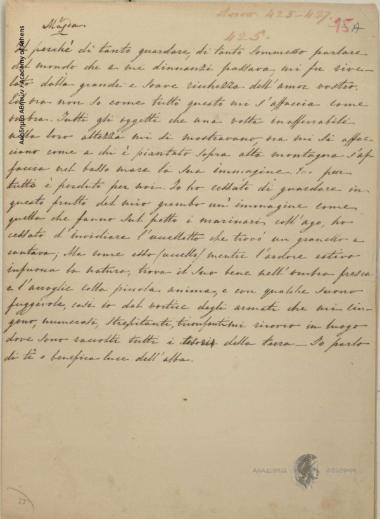 Μάγεια.
425-427
95 A
425.
Il perchè di tanto guardare, di tanto sommesso parlare
del mondo che a me dinnanzi passava, mi fu rive-
lato dalla grande e soave ricchezza dell'amor vostro.
Ed ora non so come tutto questo mi s'affaccia come
ombra. Tutti gli oggetti che una volta inafferrabili
nella loro altezza mi si mostravano, ora mi si affac-
ciano come a chi è piantato sopra alta montagna s'af-
faccia nel basso mare la sua immagine. E pur
tutto è perduto per noi. Io ho cessato di guardare in
questo frutto del mio grembo un'immagine come
quella che fanno sul petto i marinari coll'ago, ho
cessato d'invidiare l'uccelletto che trovò un granello e
cantava, Ma come esso (uccello) mentre l'ardore estivo
infuoca la natura, trova il suo bene nell'ombra fresca
e l'accoglie colla piccola anima, e con qualche suono
fuggevole, così io dal vortice degli armati che mi cin-
gono, numerosi, strepitanti, trionfanti mi ricovro in luogo
dove sono raccolti tutti i tesori della terra — Io parlo
di te o benefica luce dell'alba.
ΑΚΑΔΗΜΙΑ ΑΘΗΝΩΝ
Ακαδημία Αθηνών / Academy of Athens